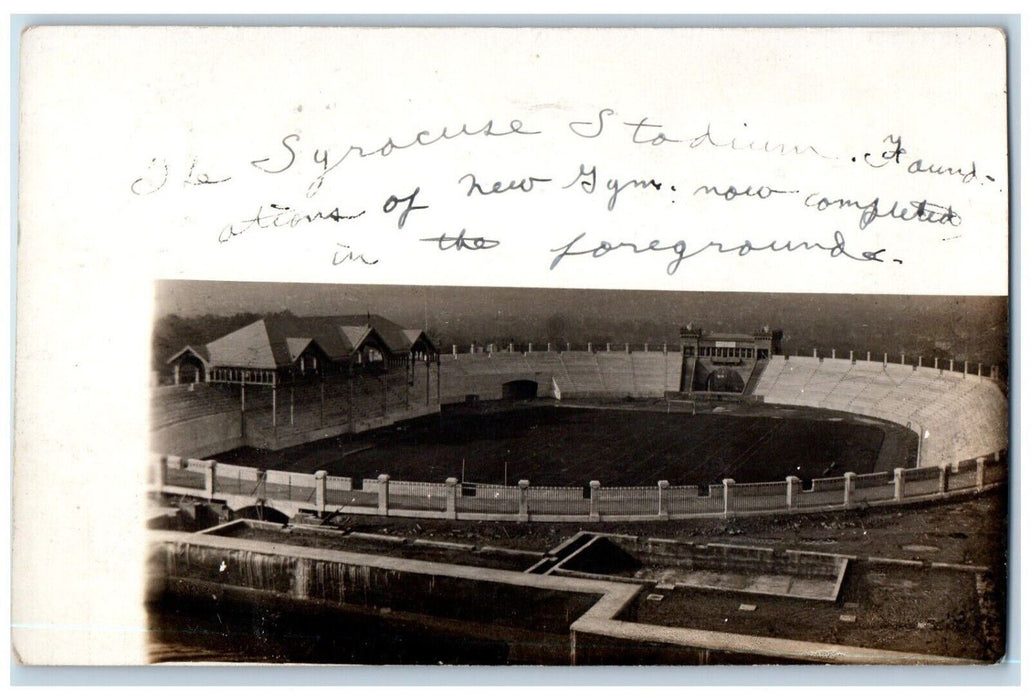 The Syracuse Stadium. Found-
ations of New Gym. now completed
in the foreground.